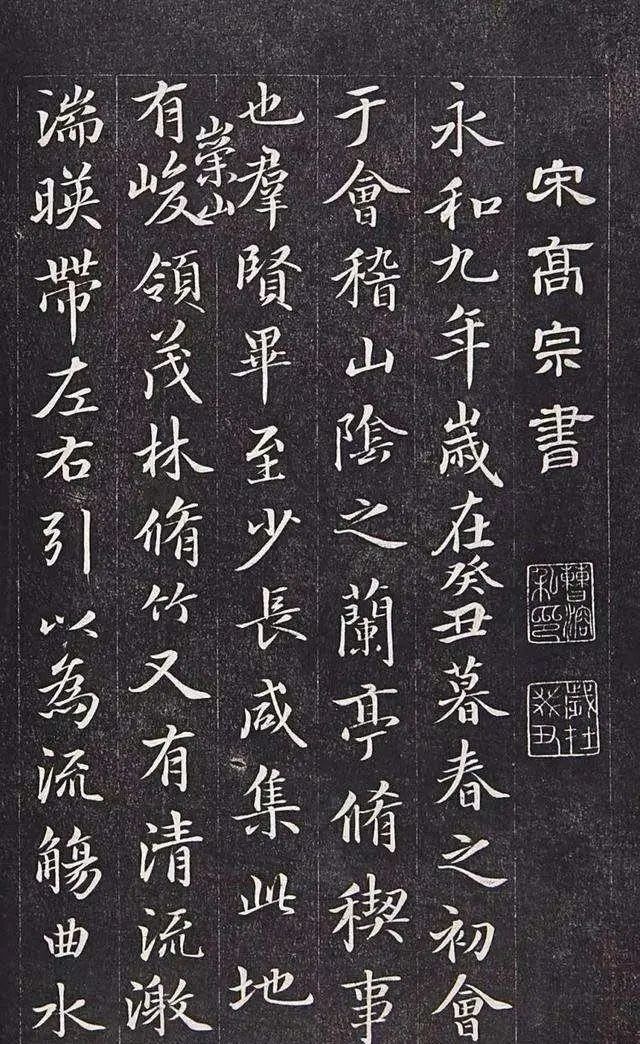 宋高宗書
永和九年歲在癸丑暮春之初會
于會稽山陰之蘭亭脩稧事
也羣賢畢至少長咸集此地
有崇山峻領茂林脩竹又有清流激
湍暎帶左右引以為流觴曲水
曹溶私印